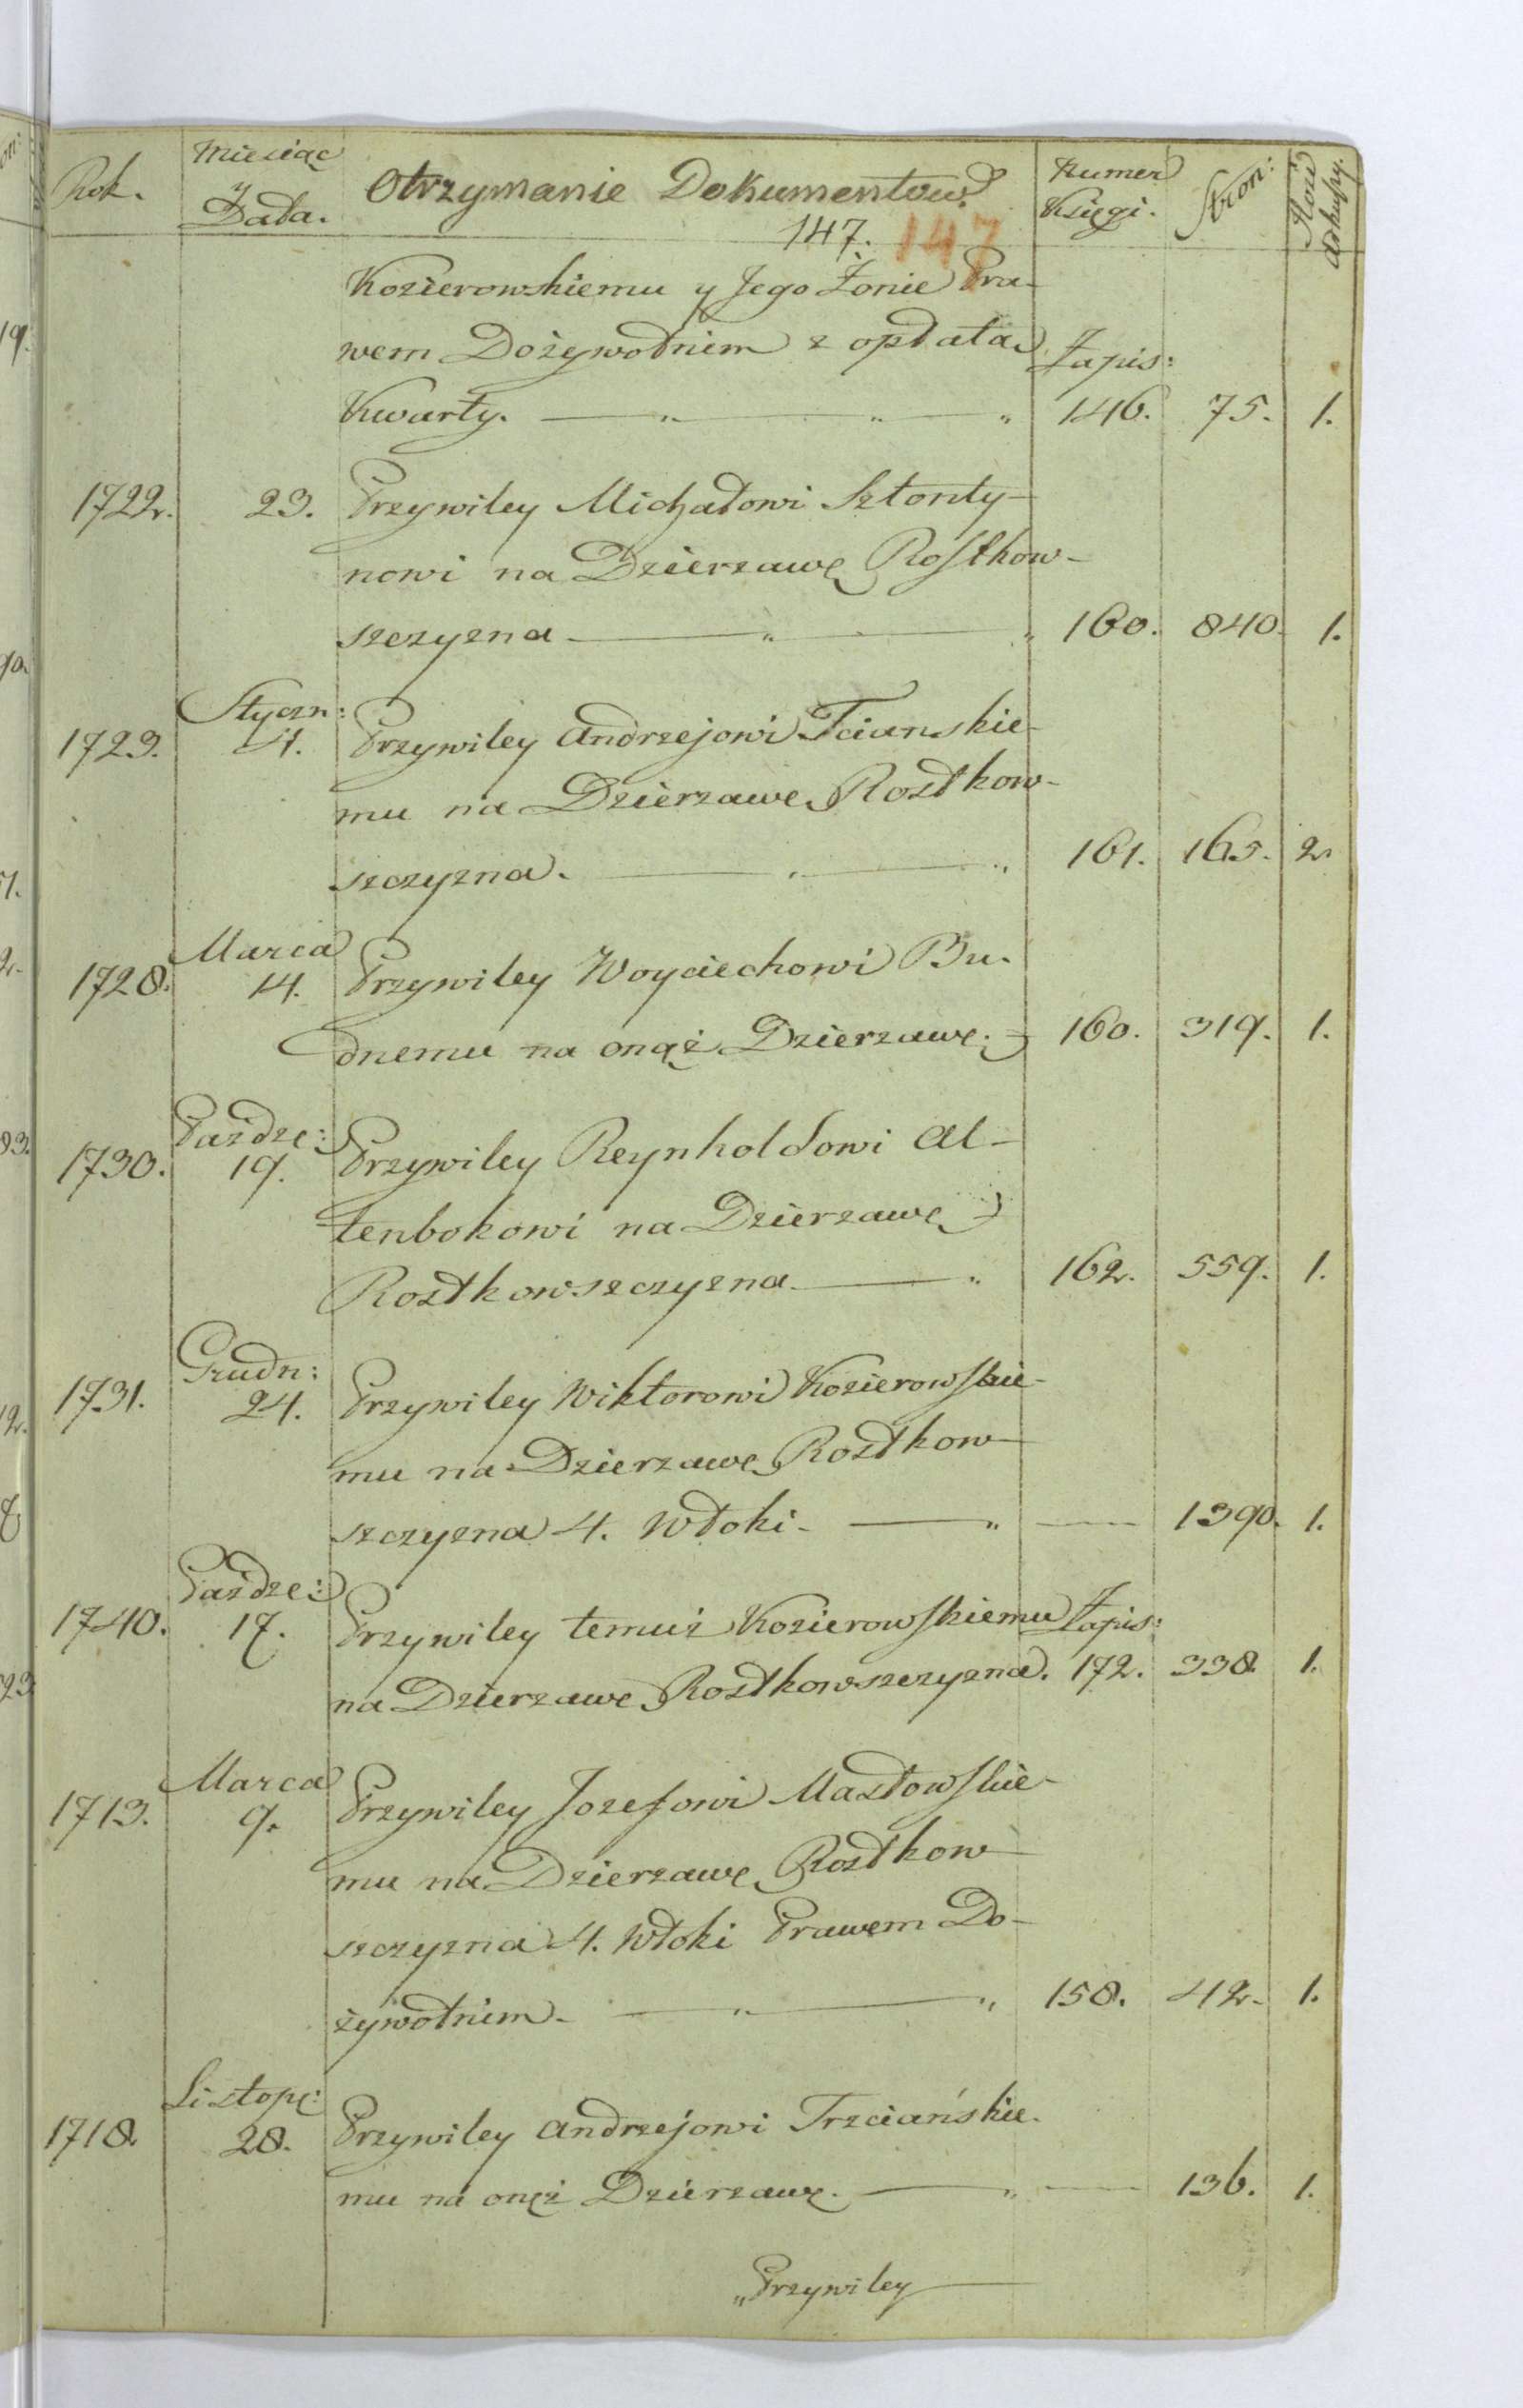 Rok. Miesiąc y Data. Otrzymanie Dokumentow. Numer Księgi. Stron: Ilość arkuszy.
147. 147
Kozierowskiemu y Jego Żonie Pra-
wem Dożywotniem z opłatą Zapis:
Kwarty. 146. 75. 1.
1722. 23. Przywiley Michałowi Sztonty-
nowi na Dzierzawę Rostkow-
szczyzna 160. 840. 1.
Styczn:
1723. 4. Przywiley Andrzejowi Tcianskie-
mu na Dzierzawę Rostkow-
szczyzna. 161. 165. 2.
Marca
1728. 14. Przywiley Woyciechowi Bu-
dnemu na onąż Dzierzawę. 160. 319. 1.
Paźdze:
1730. 19. Przywiley Reynholdowi Al-
tenbokowi na Dzierzawę
Rostkowszczyzna 162. 559. 1.
Grudn:
1731. 24. Przywiley Wiktorowi Kozierowskie-
mu na Dzierzawę Rostkow-
szczyzna 4. Włoki. 1390. 1.
Paźdze:
1740. 17. Przywiley temuż Kozierowskiemu Zapis:
na Dzierzawę Rostkowszczyzna. 172. 338. 1.
Marca
1713. 9. Przywiley Jozefowi Masłowskie-
mu na Dzierzawę Rostkow-
szczyzna 4. Włoki Prawem Do-
żywotnim. 158. 42. 1.
Listopę:
1718. 28. Przywiley Andrzejowi Trzciańskie-
mu na onęż Dzierzawę. 136. 1.
„Przywiley